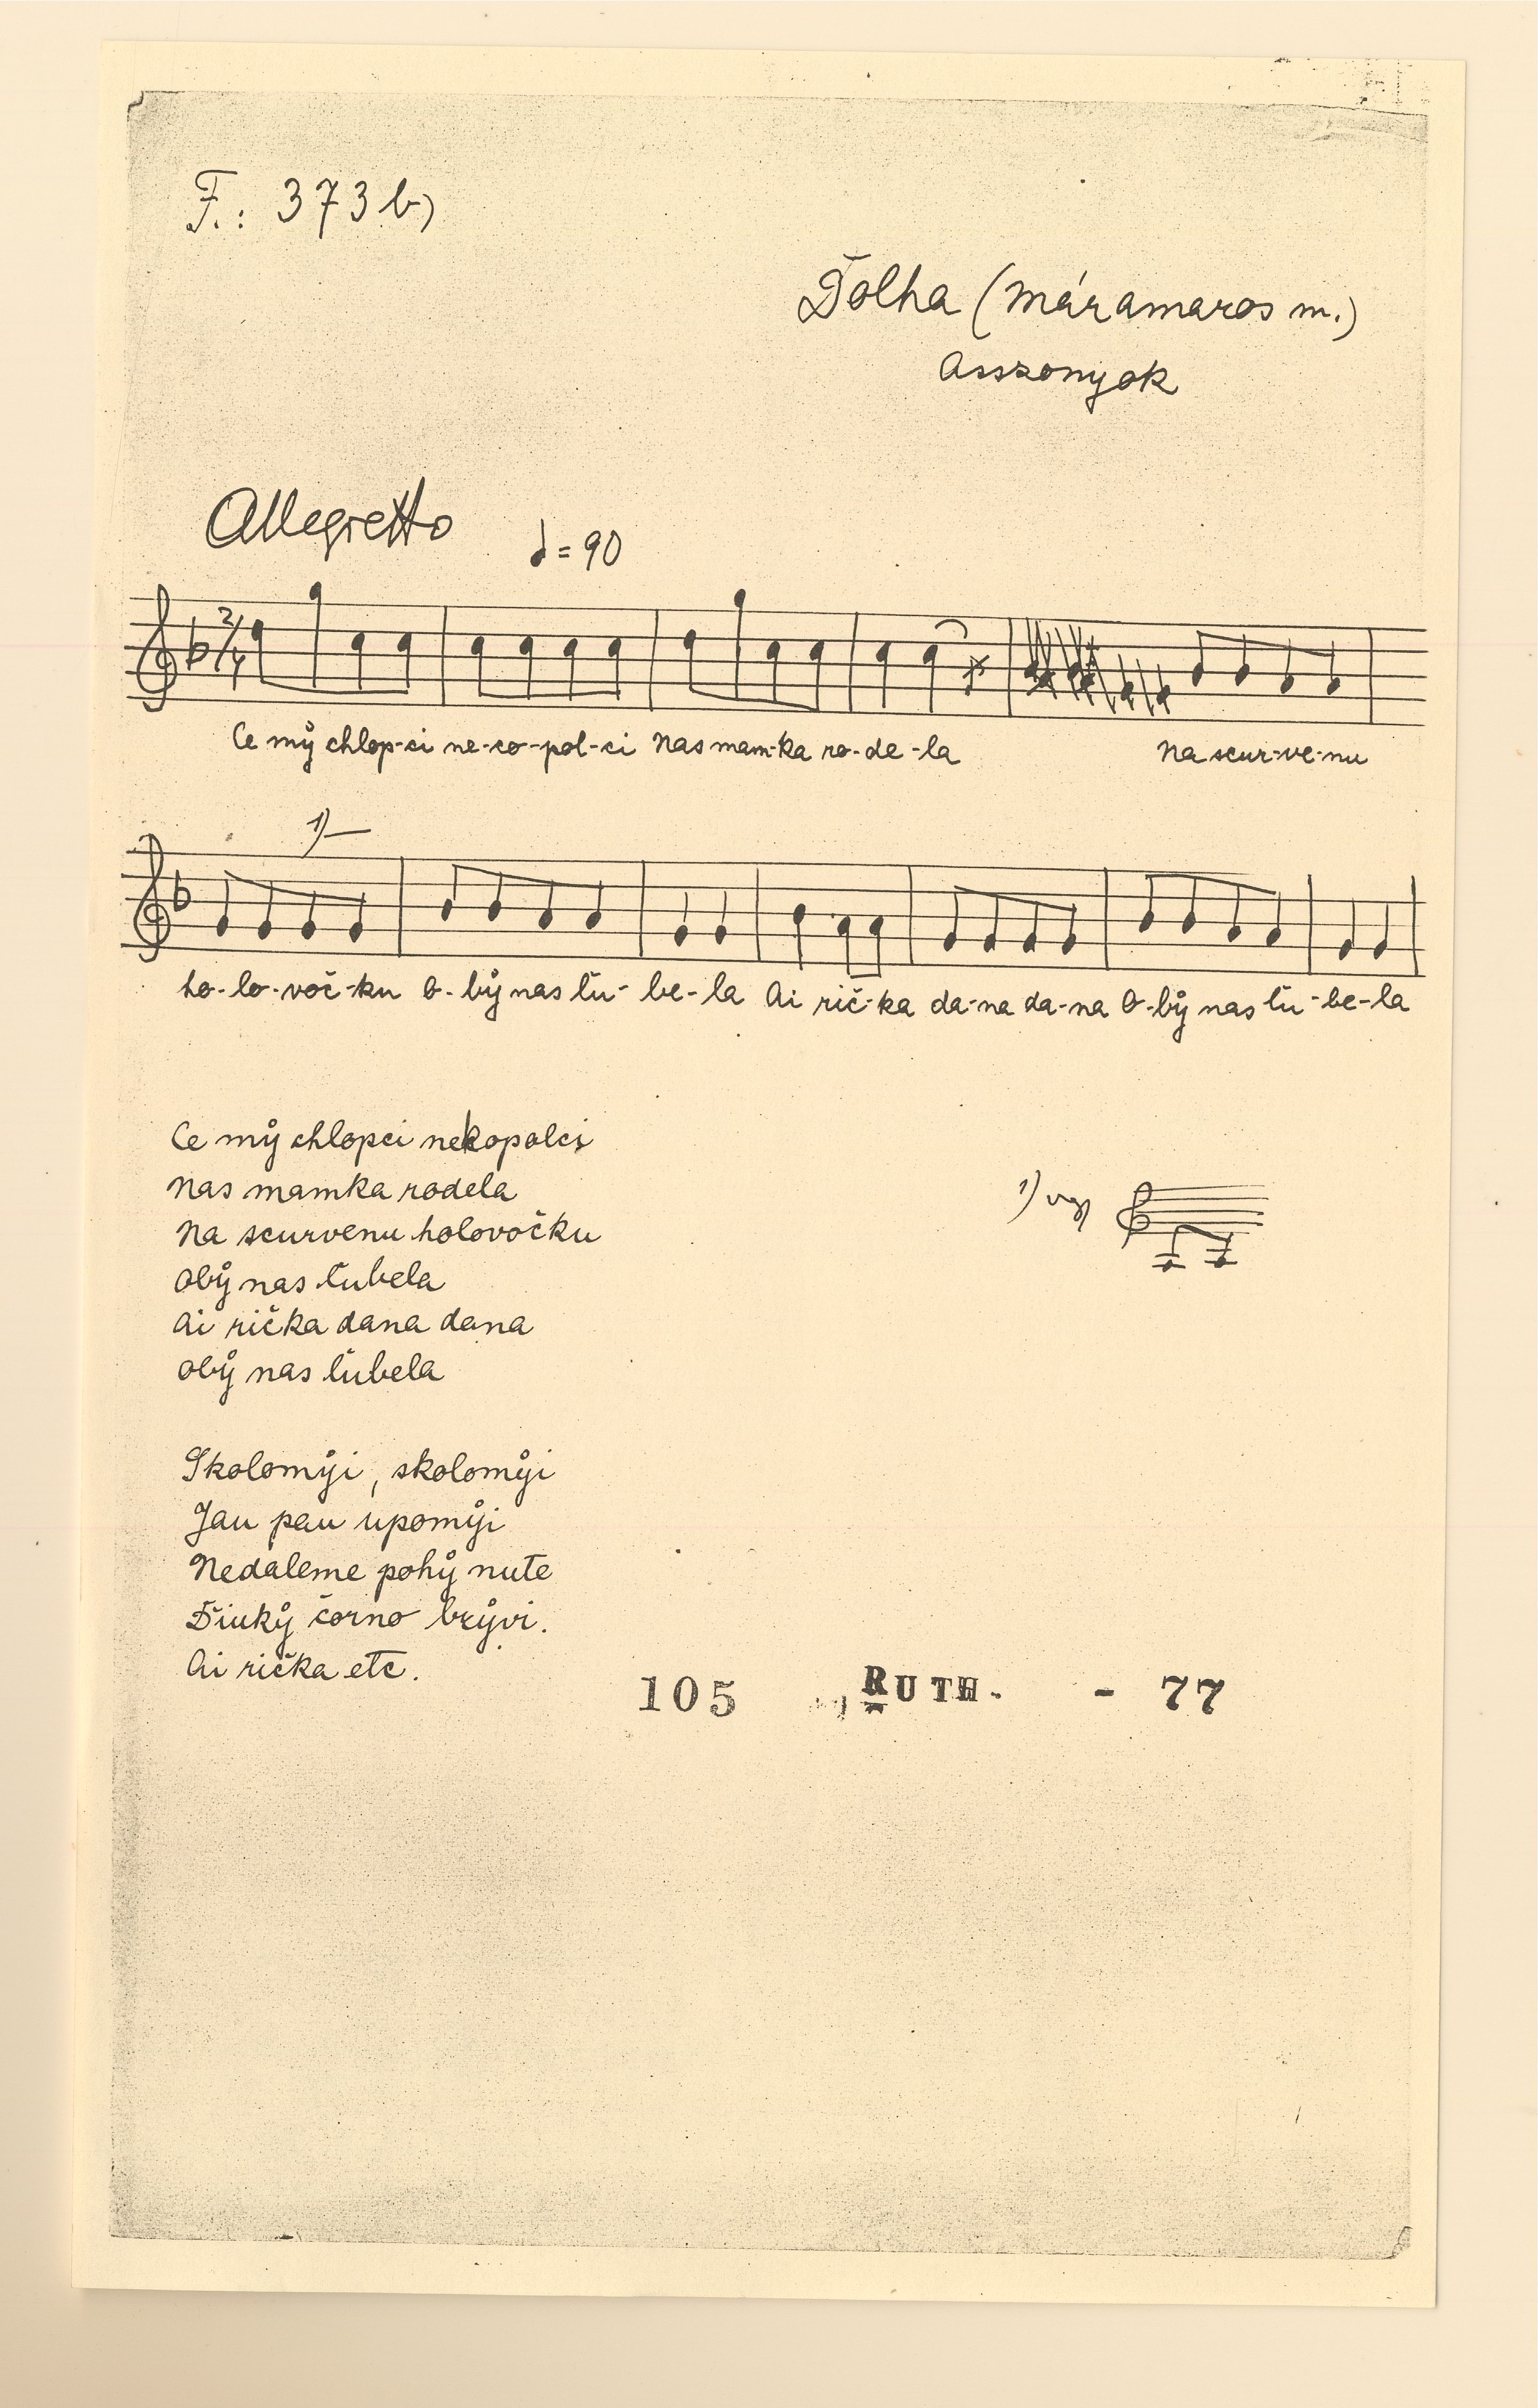 F.: 373 b)
Dolha (Máramaros m.)
Asszonyok
Allegretto ♩ = 90
2/4
Ce mẙ chlop-ci ne-co-pol-ci Nas mam-ka ro-de-la Na scur-ve-nu
1)
ho-lo-voč-ku O-bẙ nas l̆u-be-la Ai rič-ka da-na da-na O-bẙ nas l̆u-be-la
Ce mẙ chlopci nekopolci
Nas mamka rodela
Na scurvenu holovočku
Obẙ nas l̆ubela
Ai rička dana dana
Obẙ nas l̆ubela
1) vagy
Skolomẙi, skolomẙi
Jau pau upomẙi
Nedaleme pohẙnut̆e
D̆iukẙ čorno brẙvi.
Ai rička etc.
105 RUTH. - 77